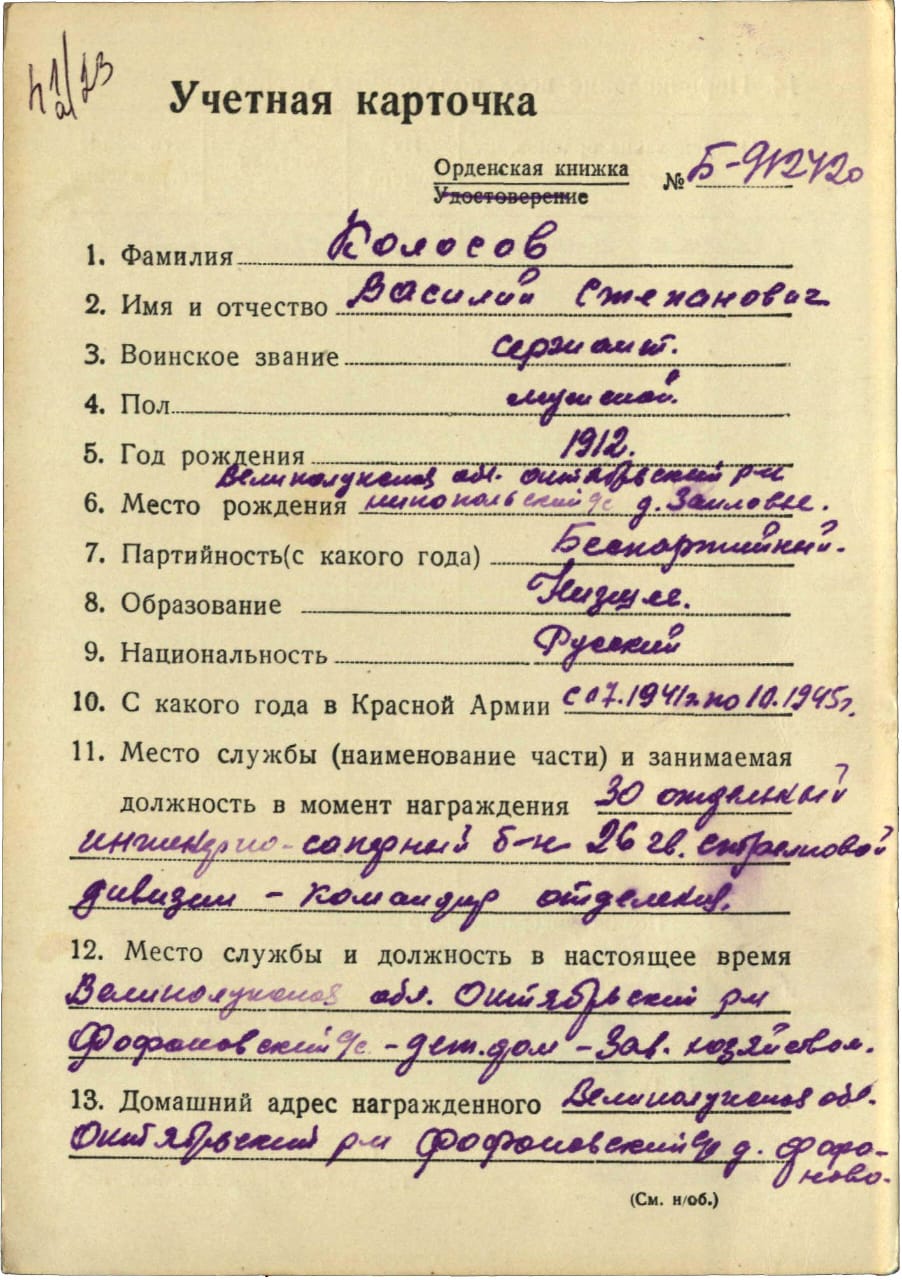 Учетная карточка
Орденская книжка
Удостоверение
№ Б-912420
1. Фамилия Колосов
2. Имя и отчество Василий Степанович
3. Воинское звание сержант.
4. Пол мужской.
5. Год рождения 1912.
Великолукская обл. Октябрьский р-н
6. Место рождения с/с д.
7. Партийность(с какого года) Беспартийный.
8. Образование Низшее.
9. Национальность Русский
10. С какого года в Красной Армии с 07.1941г. по 10.1945г.
11. Место службы (наименование части) и занимаемая
должность в момент награждения 30 отдельный
инженерно-саперный б-н 26 гв. стрелковой
дивизии - командир отделения.
12. Место службы и должность в настоящее время
Великолукская обл. Октябрьский р-н
Фофановский с/с - дет.дом - Зав. хозяйством.
13. Домашний адрес награжденного Великолукская обл.
Октябрьский р-н Фофановский с/с д. Фофа-
ново.
(См. н/об.)